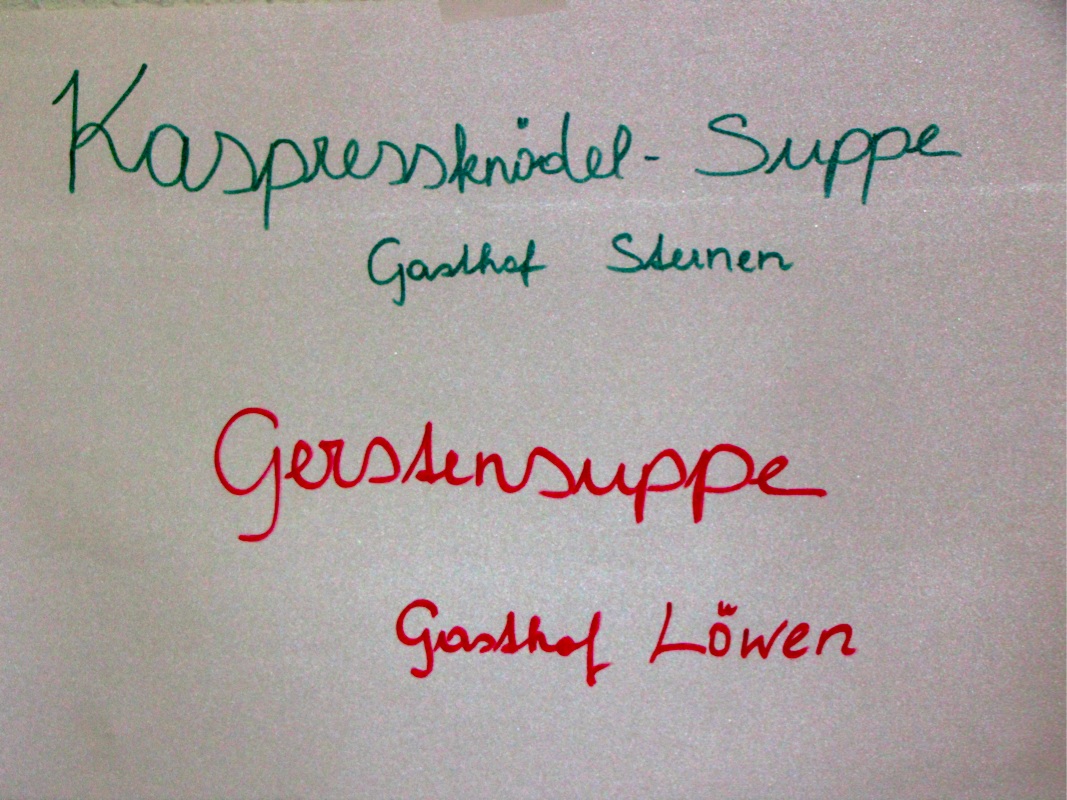 Kaspressknödel - Suppe
Gasthof Sternen
Gerstensuppe
Gasthof Löwen